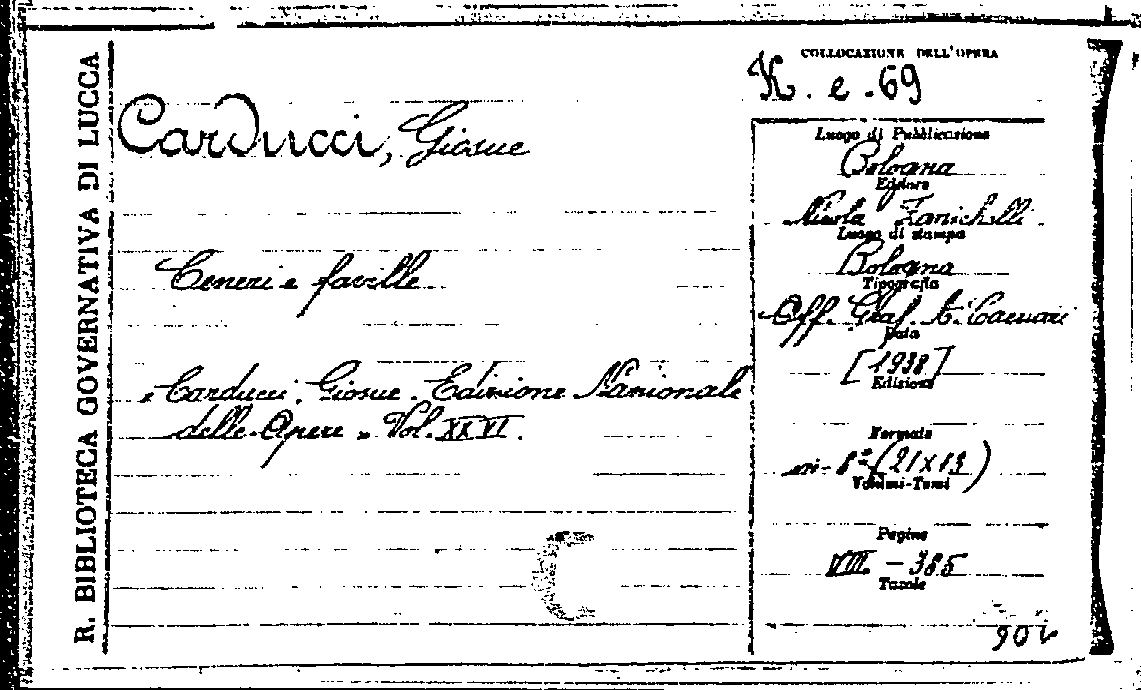 R. BIBLIOTECA GOVERNATIVA DI LUCCA
Carducci, Giosue
Ceneri e faville
"Carducci. Giosue. Edizione Nazionale
delle Opere" Vol. XXVI.
COLLOCAZIONE DELL'OPERA
K. e. 69
Luogo di Pubblicazione
Bologna
Editore
Nicola Zanichelli
Luogo di stampa
Bologna
Tipografia
Off. Graf. A. Cacciari
Data
[1938]
Edizione
Formato
in-8° (21x13)
Volumi-Tomi
Pagine
VIII - 385
Tavole